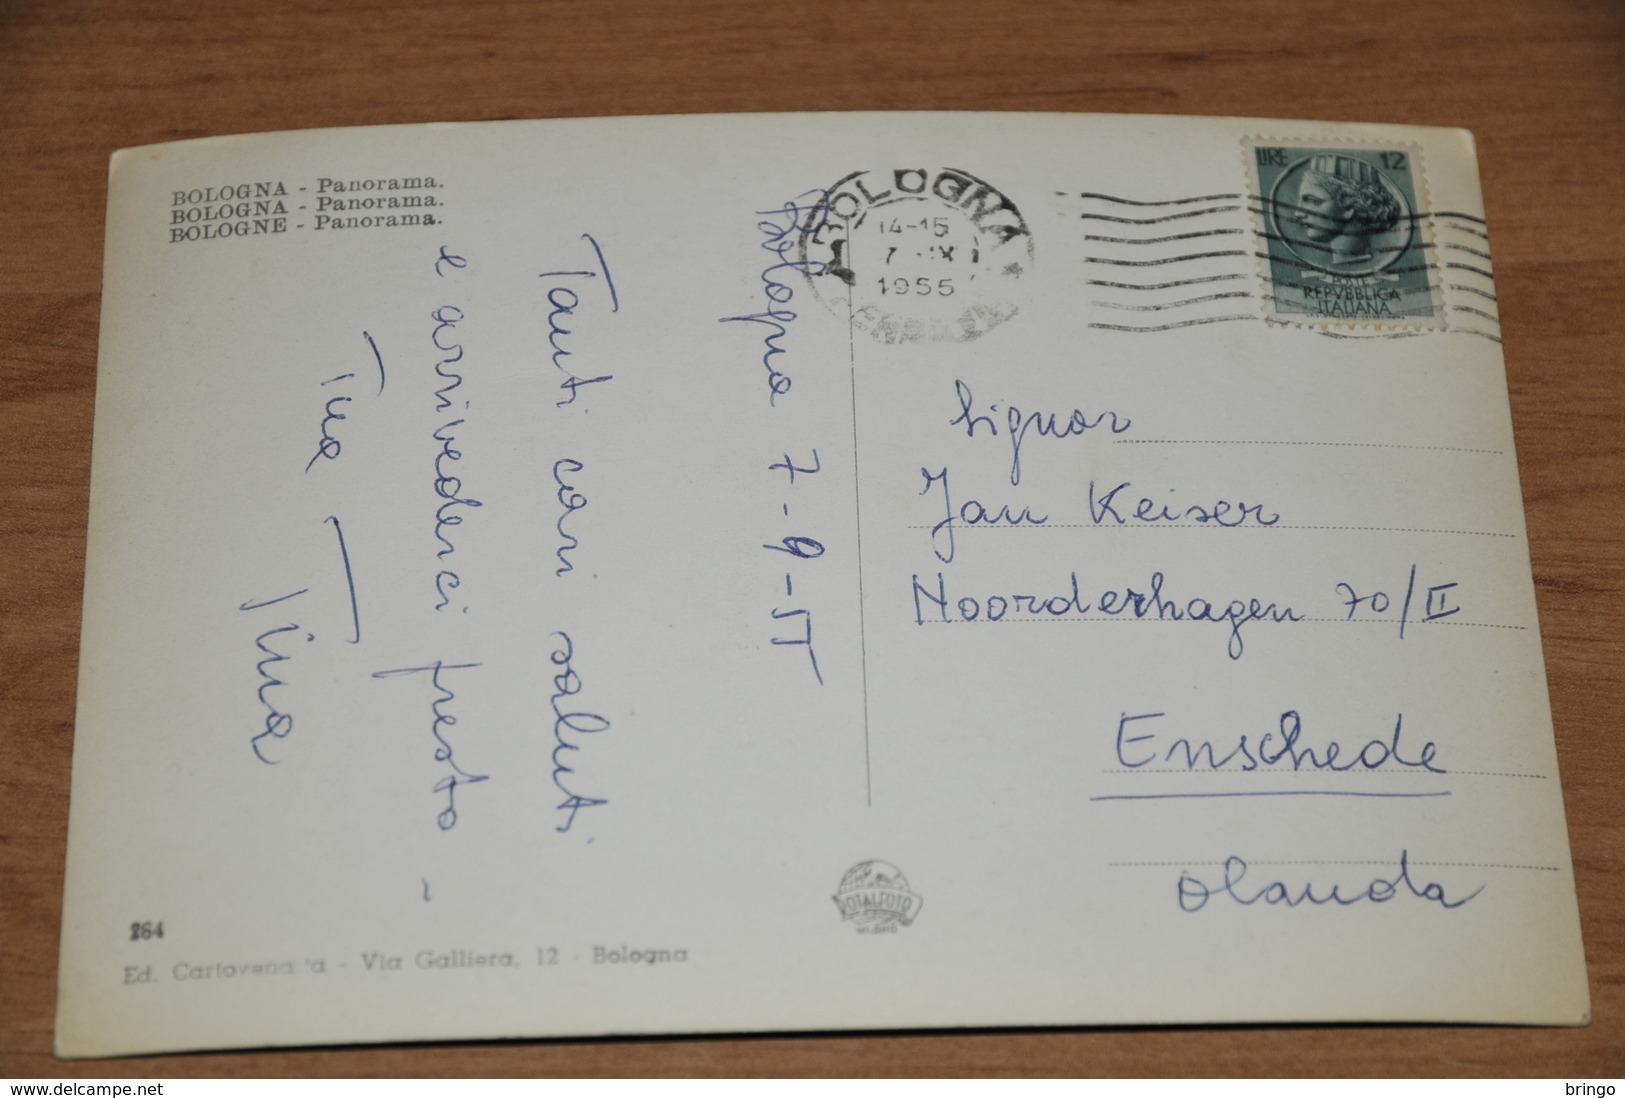 BOLOGNA - Panorama.
BOLOGNA - Panorama.
BOLOGNE - Panorama.
BOLOGNA
14-15
7 - IX
1955
LIRE 12
POSTE
REPVBBLICA
ITALIANA
Bologna 7-9-55
Tanti cari saluti
e arrivederci presto -
Tua
Tina
Signor
Jan Keiser
Noorderhagen 70/II
Enschede
Olanda
264
Ed. Cartovendita - Via Galliera, 12 - Bologna
TOTALFOTO
MILANO
delcampe.net
bringo